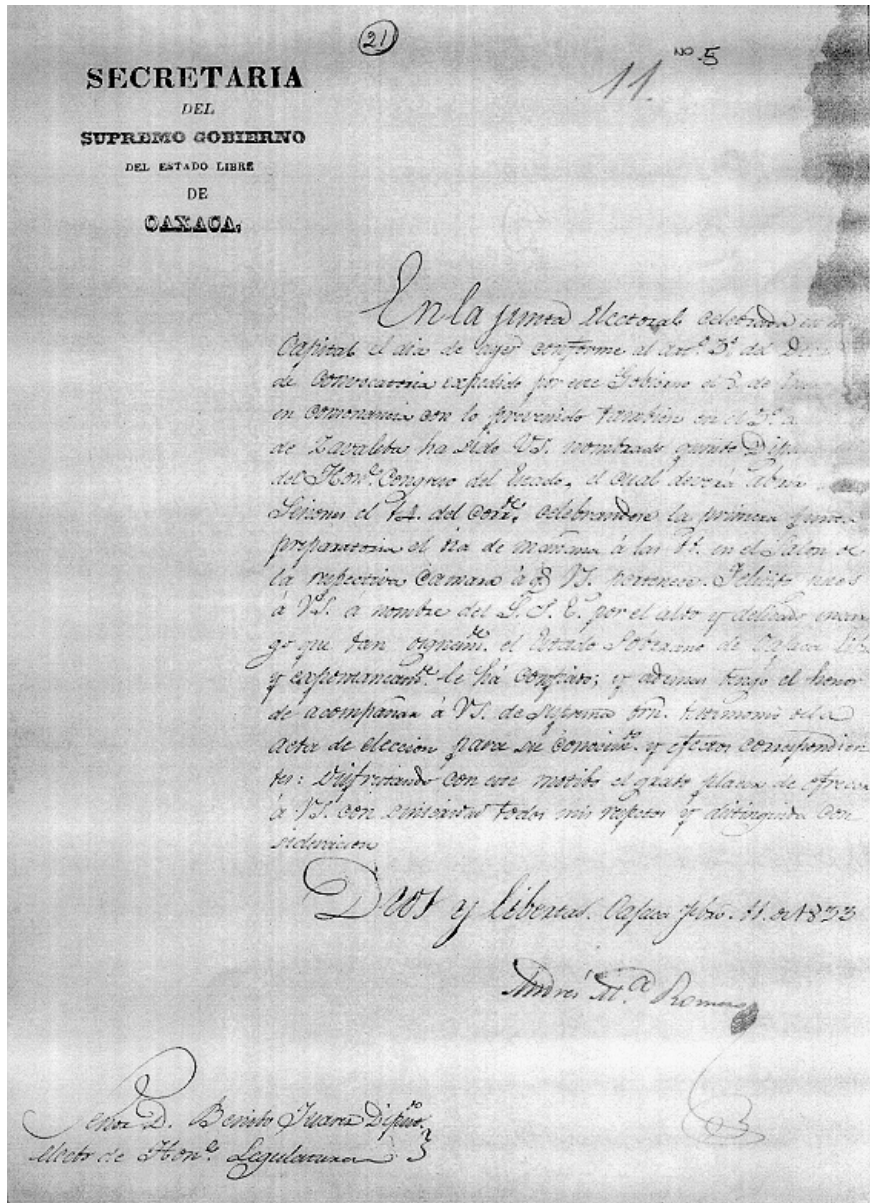 21
11
No. 5
SECRETARIA
DEL
SUPREMO GOBIERNO
DEL ESTADO LIBRE
DE
OAXACA,
En la junta electoral celebrada en
Capital el dia de ayer conforme al arto. 3o. del
de convocatoria expedido por este Gobierno el 2 de
en consonancia con lo prevenido tambien en el
de Zavaleta ha sido VS. nombrado quinto
del Hone. Congreso del Estado, el cual deverá
Señores el 14. del corrte. celebrandose la primera junta
preparatoria el dia de mañana á las en el Salon de
la respectiva camara á VS. pertenece. Felicito pues
á VS. a nombre del por el alto y delicado encar
go que tan dignamte. el Estado Soberano de Oajaca
y le há confiado; y ademas tengo el honor
de acompañar á VS. de suprema orn. testimonio de la
acta de eleccion para su conocimto. y efectos correspondien
tes: disfrutando con este motibo el grato placer de ofrecer
á VS. con sinceridad todos mis respetos y distinguida con
sideracion
Dios y libertad. Oajaca Febo. 11. de 1833
Andres Ma. Romero
Señor D. Benito Juarez Dipdo.
electo de Hone. Legislatura